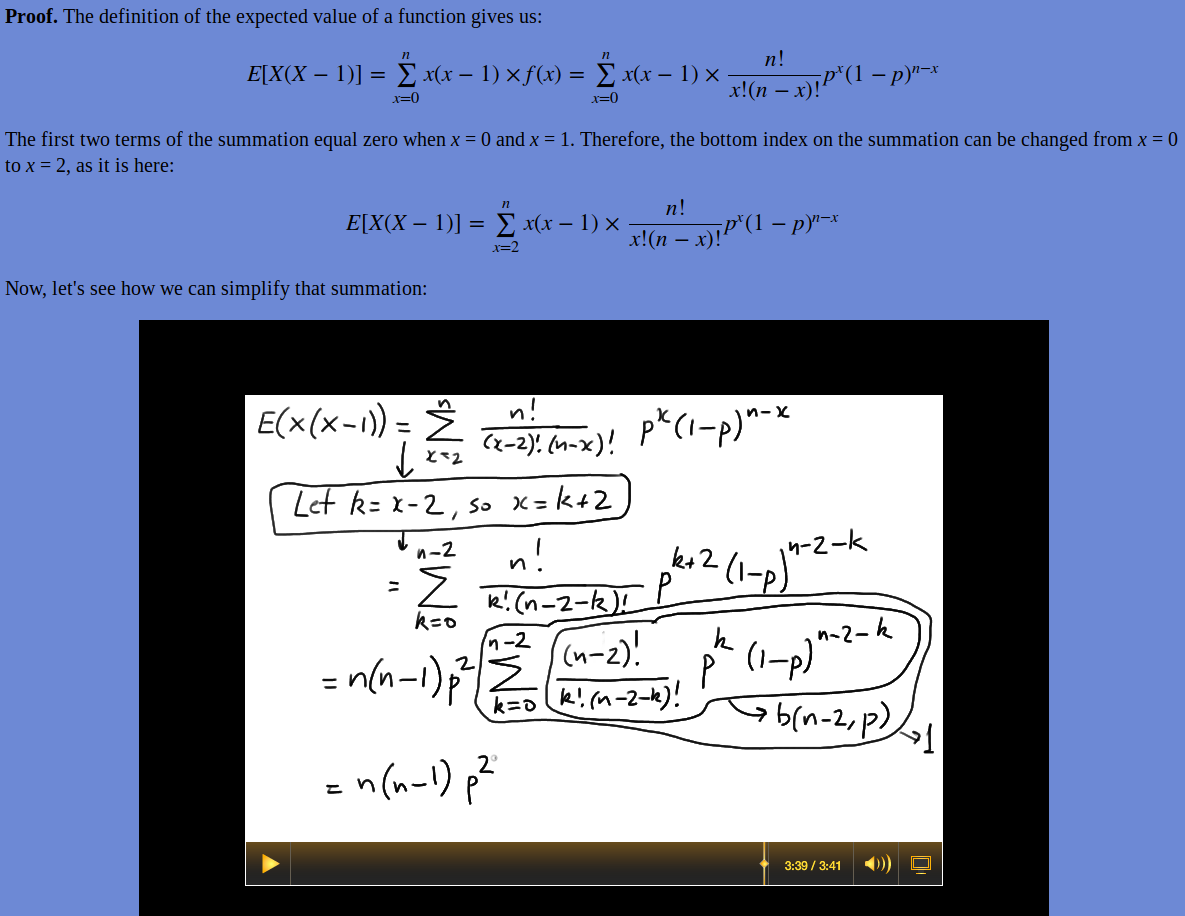 Proof. The definition of the expected value of a function gives us:
E[X(X − 1)] = ∑_{x=0}^{n} x(x − 1) × f(x) = ∑_{x=0}^{n} x(x − 1) × n!/(x!(n − x)!) p^x(1 − p)^{n−x}
The first two terms of the summation equal zero when x = 0 and x = 1. Therefore, the bottom index on the summation can be changed from x = 0
to x = 2, as it is here:
E[X(X − 1)] = ∑_{x=2}^{n} x(x − 1) × n!/(x!(n − x)!) p^x(1 − p)^{n−x}
Now, let's see how we can simplify that summation:
E(x(x−1)) = ∑_{x=2}^{n} n!/((x−2)!(n−x)!) p^x(1−p)^{n−x}
↓
Let k = x−2, so x = k+2
↓
= ∑_{k=0}^{n−2} n!/(k!(n−2−k)!) p^{k+2}(1−p)^{n−2−k}
= n(n−1)p^2 ∑_{k=0}^{n−2} (n−2)!/(k!(n−2−k)!) p^k (1−p)^{n−2−k}
→ b(n−2, p) → 1
= n(n−1) p^2
3:39 / 3:41